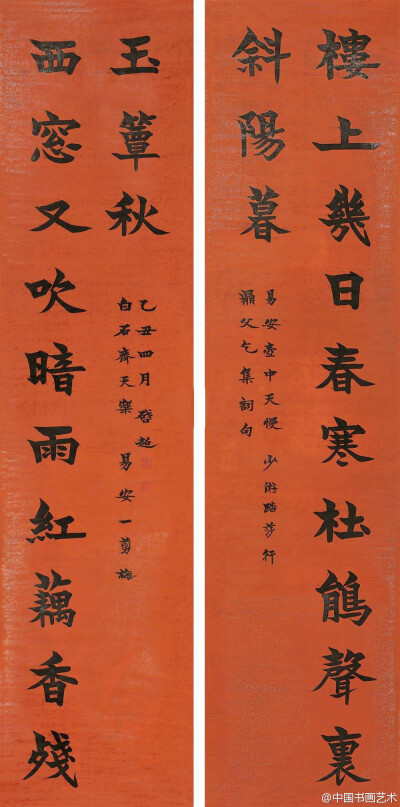 樓上幾日春寒杜鵑聲裏
斜陽暮
易安壺中天慢 少游踏莎行
父乞集詞句
西窓又吹暗雨紅藕香殘
玉簟秋
白石齊天樂 易安一翦梅
乙丑四月啓超
@中国书画艺术